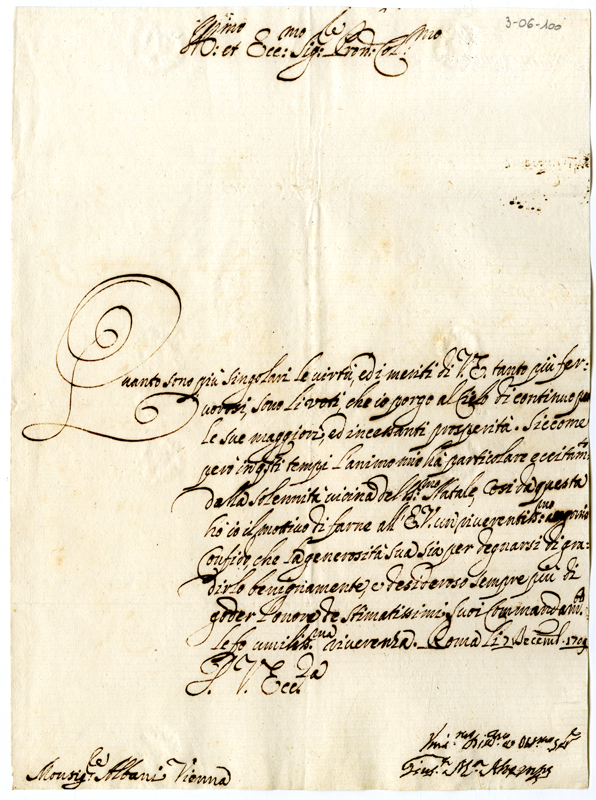 3-06-100
Ill:mo et Ecc:mo Sig:re Pron: Col:mo
Quanto sono più singolari le virtù, ed i meriti di V.E. tanto più fer:
uorosi, sono li voti, che io porgo al Cielo di continuo per
le sue maggiori, ed incessanti prosperità. Siccome
però in questi tempi l'animo mio hà particolare eccitam:to
dalla solennità vicina del S:mo Natale, Così da questa
hò io il motivo di farne all'E.V. un riuerentiss:mo augurio
Confido, che la generosità sua sia per degnarsi di gra:
dirlo benignamente, e desideroso sempre più di
goder l'onore de stimatissimi suoi Commandam:ti
le fo umiliss:ma riuerenza. Roma li 7 Decemb.
D. V. Ecc:za
Giu: M:a
Monsig:re Albani Vienna